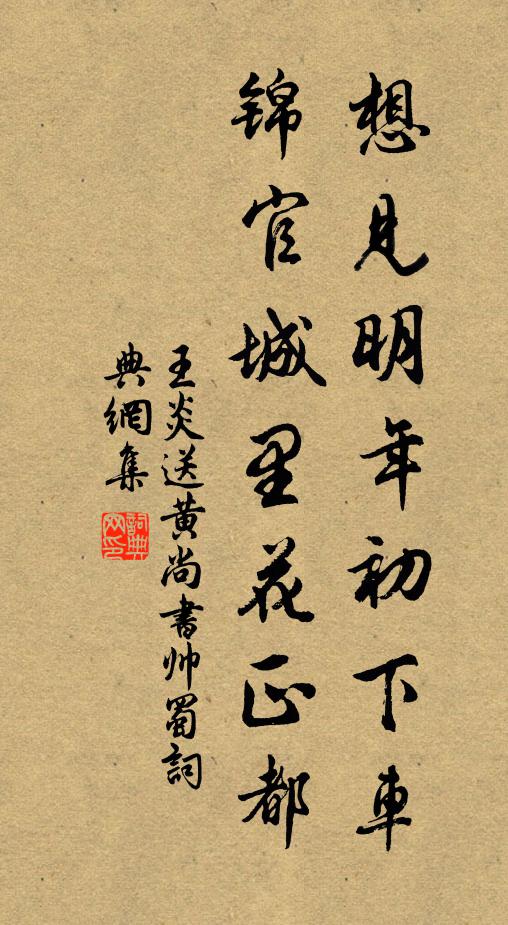 想見明年初下車
锦官城里花正都
王炎送黄尚書帅蜀詞
典網集
詞典網印